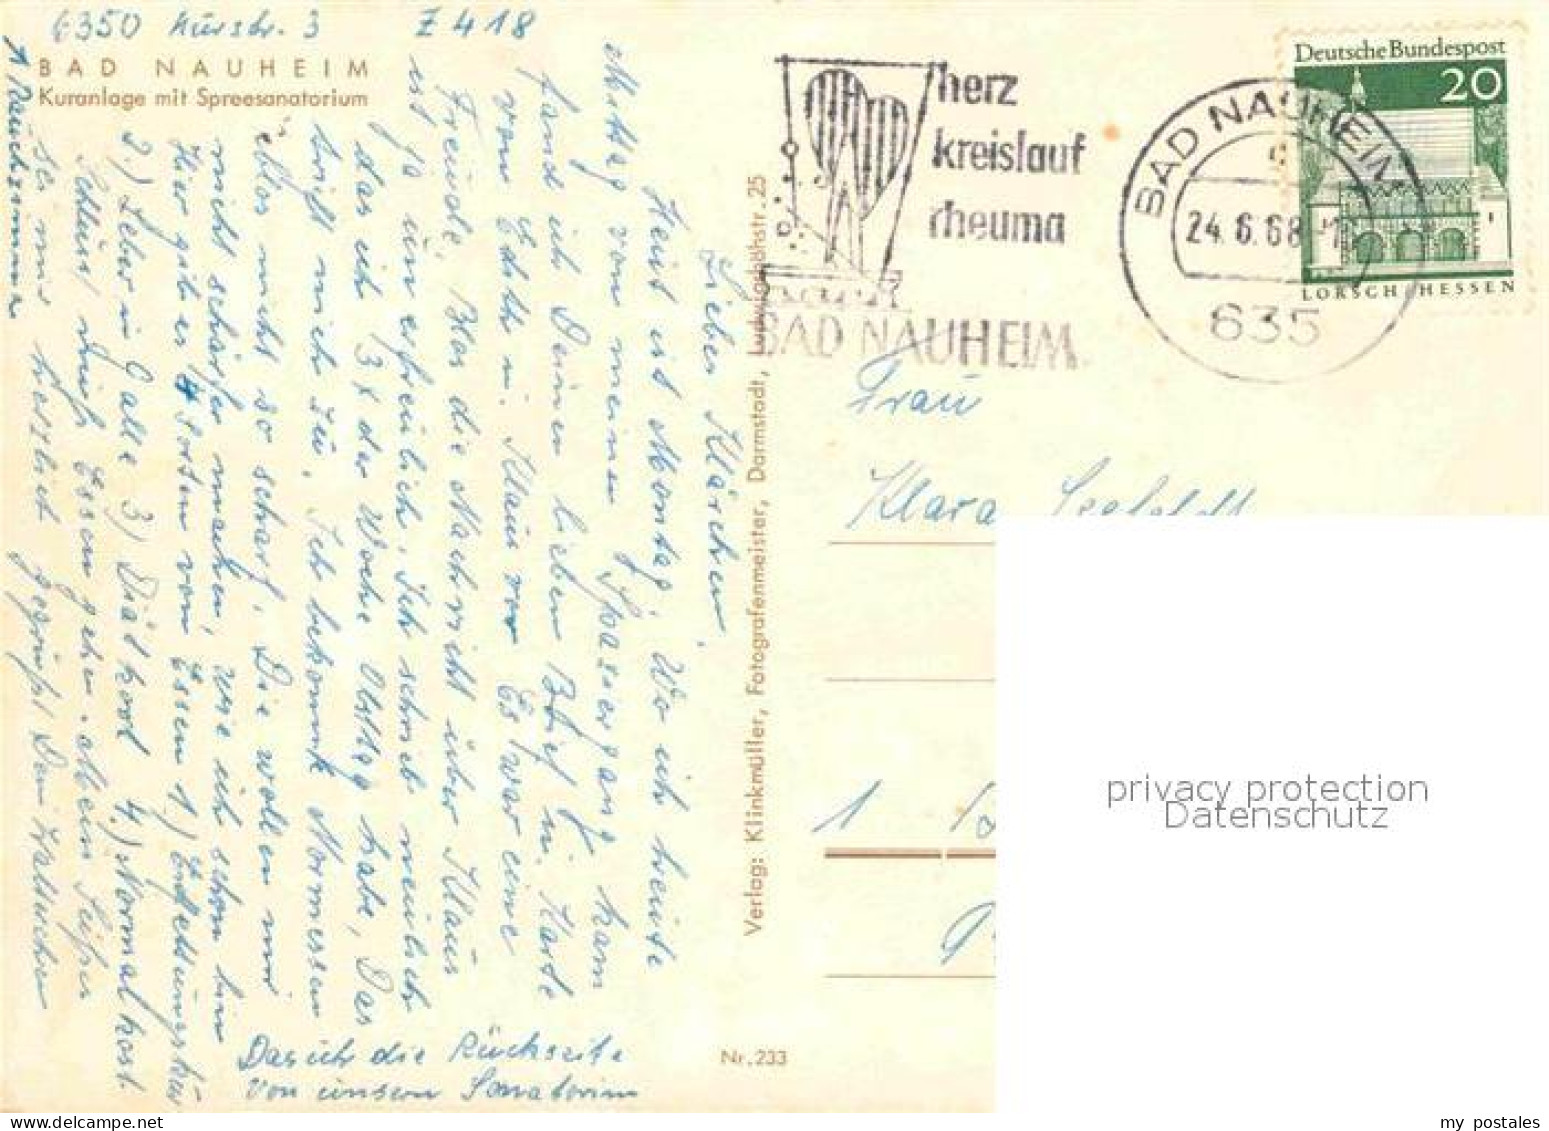 6350 Kurstr. 3 Z 418
BAD NAUHEIM
Kuranlage mit Spreesanatorium
Lieber Klärchen,
Heut ist Montag. Wo ich heute
Mittag von meinen Spaziergang kam
fand ich Deinen lieben Brief u. Karte
von Edith u. Klaus vor Es war eine
Freude, Blos die Nachricht über Klaus
ist ja unerfreulich. Ich schrieb neulich
das ich 3x der Woche Obsttag habe, Das
trift nicht zu. Ich bekomme Normessen
blos nicht so scharf. Die wollen mi
nicht schärfer machen, wie ich schon bin
Hier gibt es 4 Sorten von Essen 1)
2.) Leber u Galle 3) Diätkost 4.) Normalkost.
muß Essen gehn. Mein Süßer
sei mir herzlich gegrüßt Dein
Das ich die Rückseite
von unsern Sanatorium
Verlag: Klinkmüller, Fotografenmeister, Darmstadt, Ludwigshöhstr. 25
Nr. 233
herz
kreislauf
rheuma
BAD NAUHEIM
BAD NAUHEIM
24.6.68
635
Deutsche Bundespost
20
LORSCH/HESSEN
Frau
Klara Seefeldt
1
privacy protection
Datenschutz
my postales